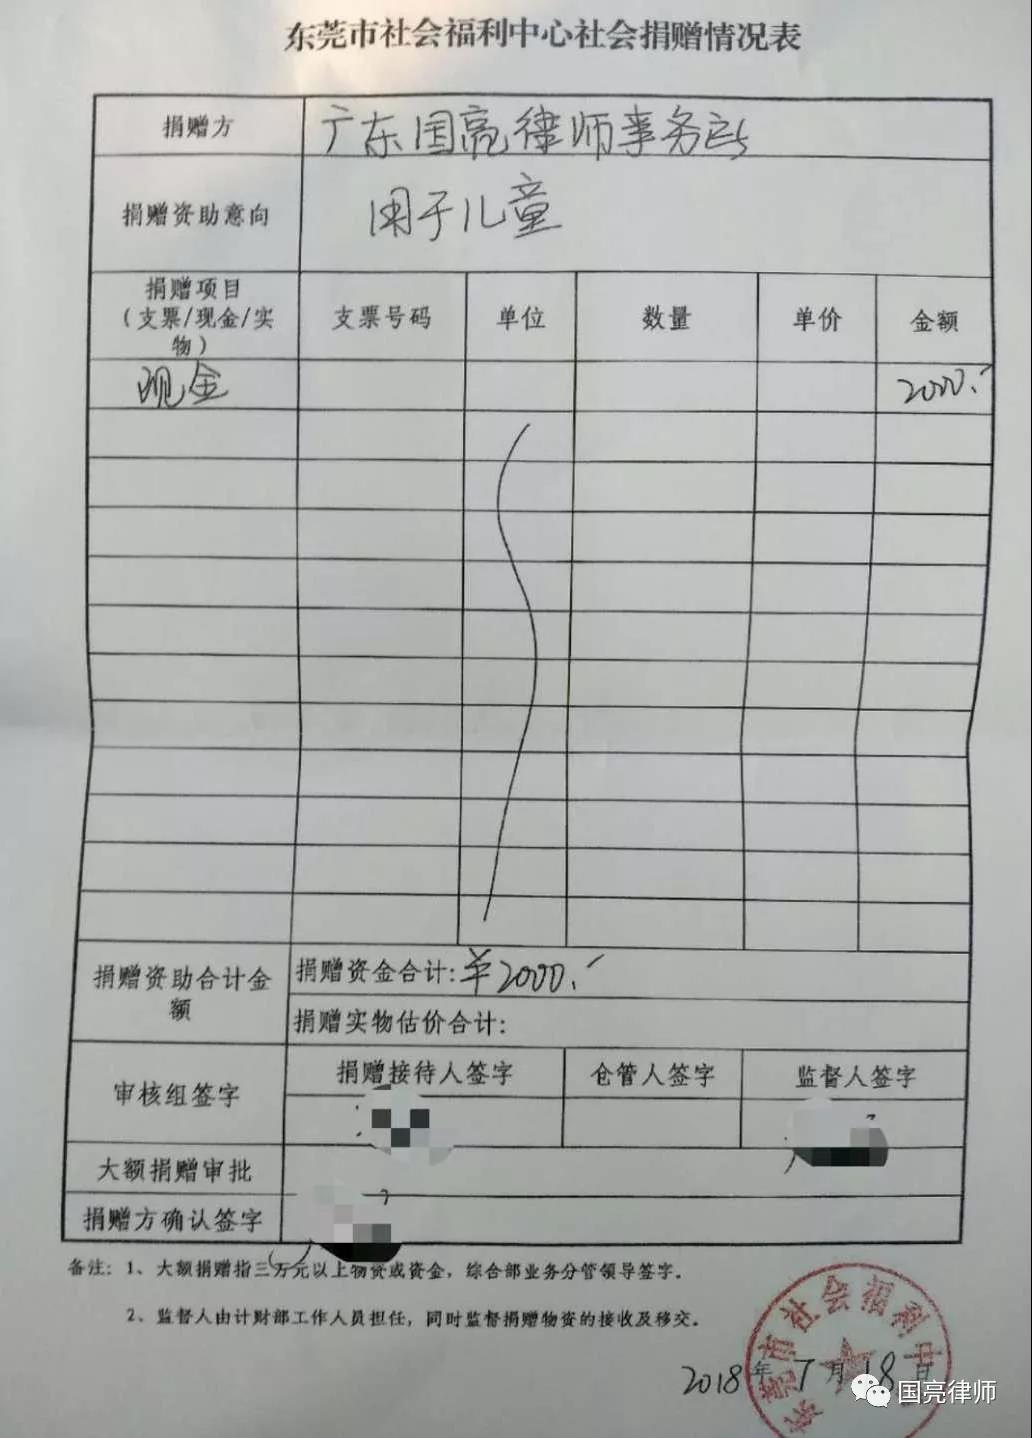 东莞市社会福利中心社会捐赠情况表
捐赠方 广东国亮律师事务所
捐赠资助意向 用于儿童
捐赠项目
（支票/现金/实
物）
支票号码 单位 数量 单价 金额
现金 2000.
捐赠资助合计金
额
捐赠资金合计：¥2000.
捐赠实物估价合计：
审核组签字
捐赠接待人签字 仓管人签字 监督人签字
大额捐赠审批
捐赠方确认签字
备注：1、大额捐赠指三万元以上物资或资金，综合部业务分管领导签字。
2、监督人由计财部工作人员担任，同时监督捐赠物资的接收及移交。
东莞市社会福利中
2018年7月18日
国亮律师